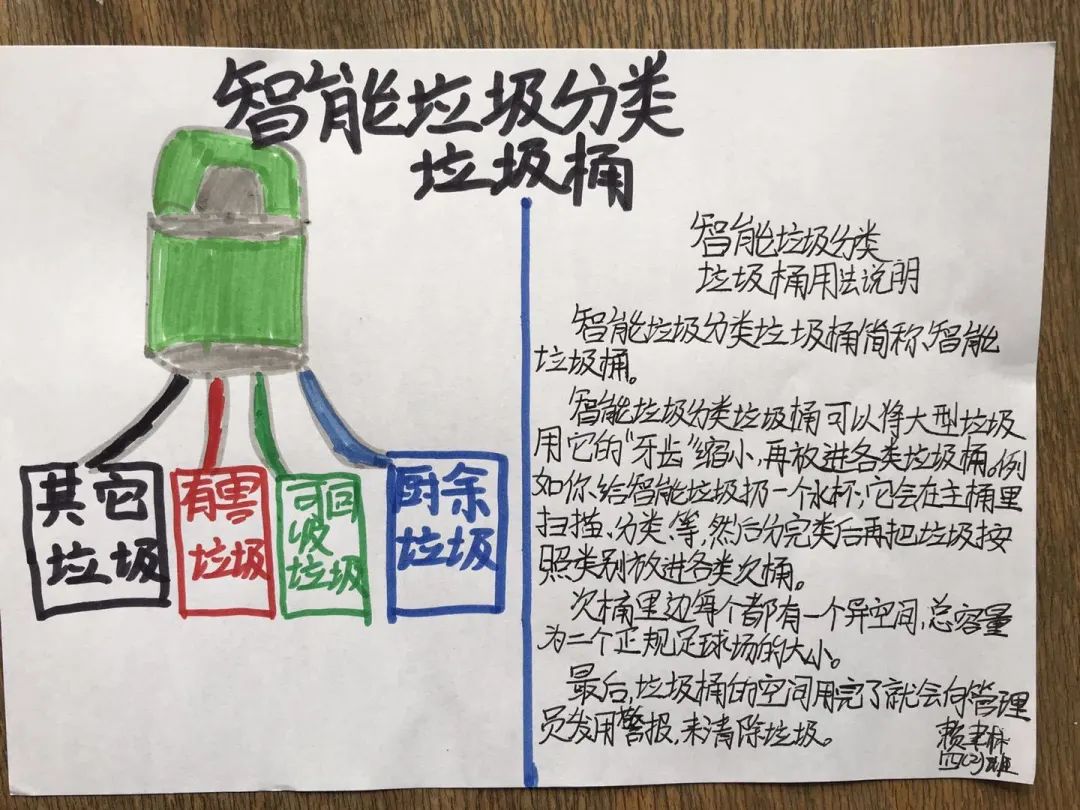 智能垃圾分类
垃圾桶
其它
垃圾
有害
垃圾
可回
收
垃圾
厨余
垃圾
智能垃圾分类
垃圾桶用法说明
智能垃圾分类垃圾桶简称、智能
垃圾桶。
智能垃圾分类垃圾桶可以将大型垃圾
用它的“牙齿”缩小,再放进各类垃圾桶。例
如你、给智能垃圾扔一个水杯;它会在主桶里
扫描、分类、等,然后分完类后再把垃圾按
照类别放进各类次桶。
次桶里边每个都有一个异空间,总容量
为二个正规足球场的大小。
最后,垃圾桶的空间用完了就会向管理
员发用警报,来清除垃圾。
四(2)班